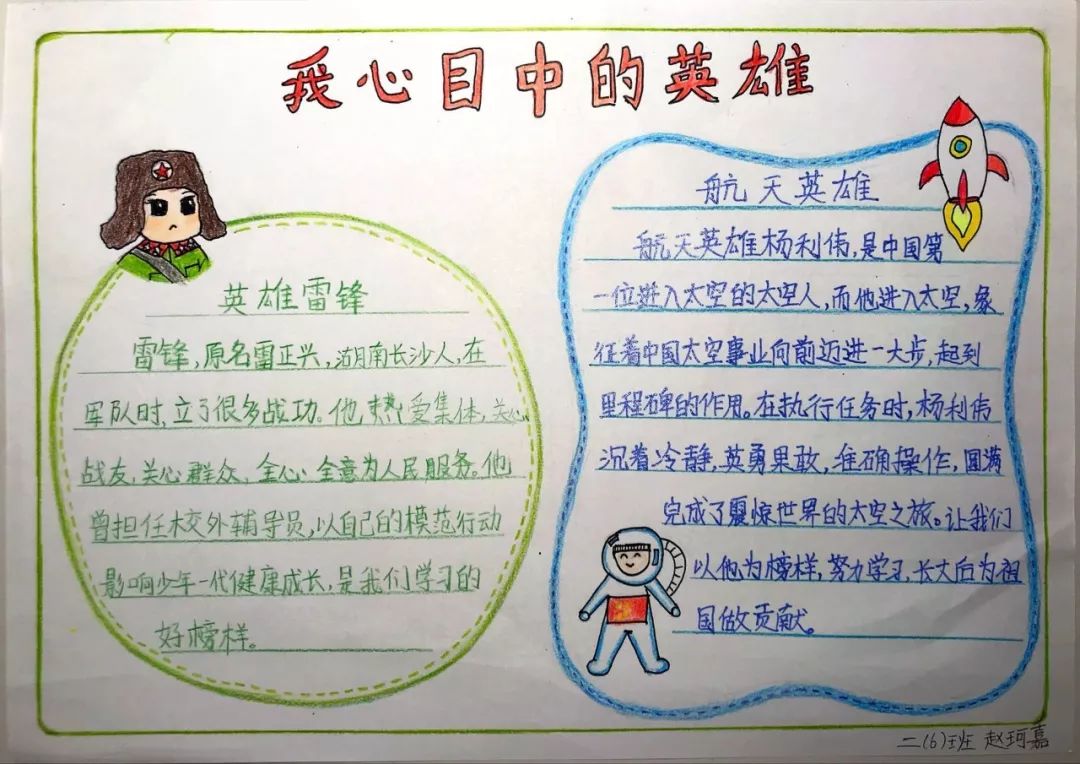 我心目中的英雄
英雄雷锋
雷锋,原名雷正兴,湖南长沙人,在
军队时,立了很多战功。他,热受集体,关心
战友,关心群众,全心全意为人民服务。他
曾担任校外辅导员,以自己的模范行动
影响少年一代健康成长,是我们学习的
好榜样。
航天英雄
航天英雄杨利伟,是中国第
一位进入太空的太空人,而他进入太空,象
征着中国太空事业向前迈进一大步,起到
里程碑的作用。在执行任务时,杨利伟
沉着冷静,英勇果敢,准确操作,圆满
完成了震惊世界的太空之旅。让我们
以他为榜样,努力学习,长大后为祖
国做贡献。
二(6)班 赵珂嘉